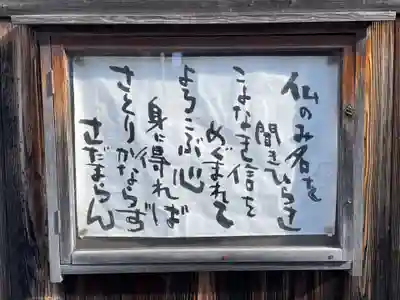 仏のみ名を
聞きひらき
こよなき信を
めぐまれて
よろこぶ心
身に得れば
さとりかならず
さだまらん